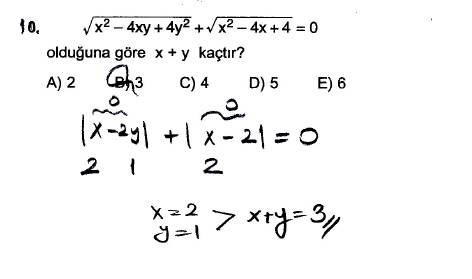 10. √x² – 4xy + 4y² + √x² – 4x + 4 = 0
olduğuna göre x + y kaçtır?
A) 2 B) 3 C) 4 D) 5 E) 6
0 0
|x-2y| + |x-2| = 0
2 1 2
x=2
y=1 > x+y=3//